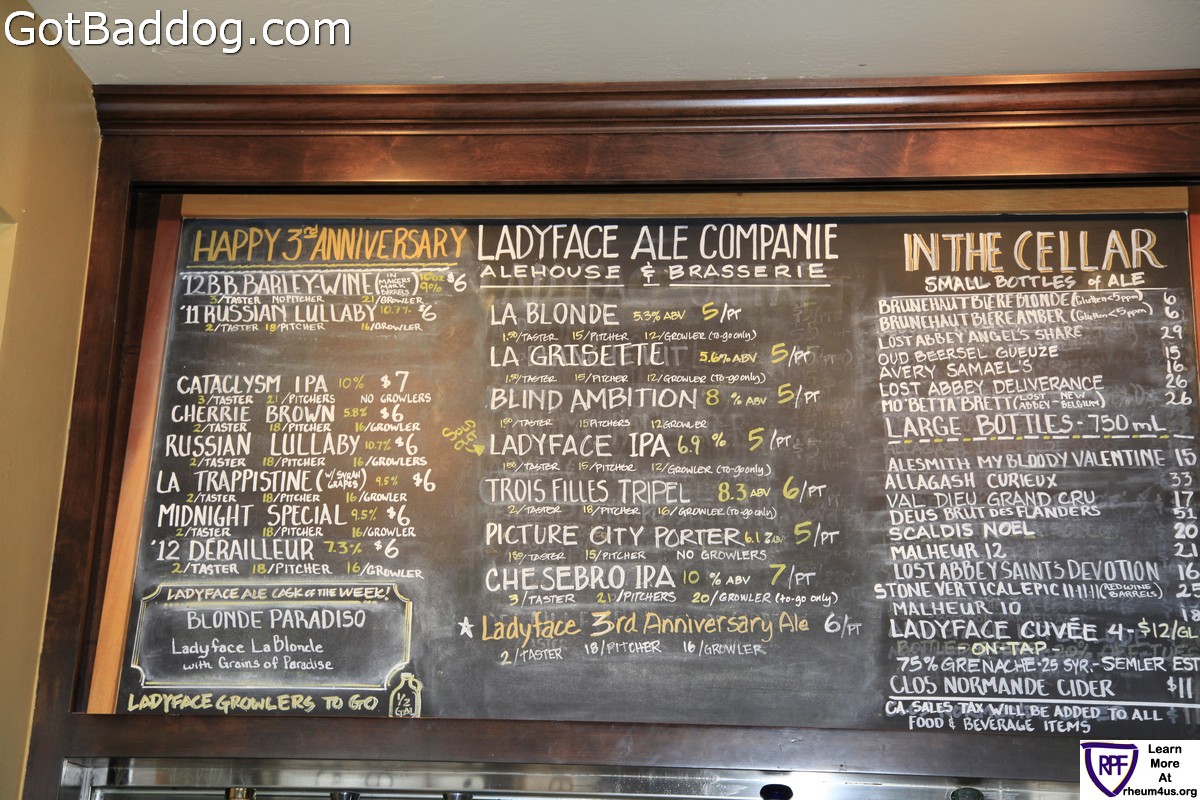 GotBaddog.com
HAPPY 3rd ANNIVERSARY
'12 B.B. BARLEY-WINE (IN MAKERS MARK BARRELS) 10oz 9.0% $6
3/TASTER NO PITCHER 21/GROWLER
'11 RUSSIAN LULLABY 10.7% $6
2/TASTER 18/PITCHER 16/GROWLER
CATACLYSM IPA 10% $7
3/TASTER 21/PITCHERS NO GROWLERS
CHERRIE BROWN 5.8% $6
2/TASTER 18/PITCHER 16/GROWLER
RUSSIAN LULLABY 10.7% $6
2/TASTER 18/PITCHER 16/GROWLERS
LA TRAPPISTINE (W/ SYRAH GRAPES) 9.5% $6
2/TASTER 18/PITCHER 16/GROWLER
MIDNIGHT SPECIAL 9.5% $6
2/TASTER 18/PITCHER 16/GROWLER
'12 DERAILLEUR 7.3% $6
2/TASTER 18/PITCHER 16/GROWLER
LADYFACE ALE CASK OF THE WEEK!
BLONDE PARADISO
Ladyface La Blonde
with Grains of Paradise
LADYFACE GROWLERS TO GO
1/2 GAL
LADYFACE ALE COMPANIE
ALEHOUSE & BRASSERIE
LA BLONDE 5.3% ABV 5/PT
1.50/TASTER 15/PITCHER 12/GROWLER (to-go only)
LA GRISETTE 5.6% ABV 5/PT
1.50/TASTER 15/PITCHER 12/GROWLER (to-go only)
BLIND AMBITION 8 % ABV 5/PT
1.50/TASTER 15 PITCHERS 12 GROWLER
LADYFACE IPA 6.9 % 5/PT
1.50/TASTER 15/PITCHER 12/GROWLER (to-go only)
TROIS FILLES TRIPEL 8.3 ABV 6/PT
2/TASTER 18/PITCHER 16/GROWLER (to go only)
PICTURE CITY PORTER 6.1 % ABV 5/PT
1.50/TASTER 15/PITCHER NO GROWLERS
CHESEBRO IPA 10 % ABV 7/PT
3/TASTER 21/PITCHERS 20/GROWLER (to-go only)
★ Ladyface 3rd Anniversary Ale 6/PT
2/TASTER 18/PITCHER 16/GROWLER
IN THE CELLAR
SMALL BOTTLES of ALE
BRUNEHAUT BIERE BLONDE (Glutten <5ppm) 6
BRUNEHAUT BIERE AMBER (Glutten <5ppm) 6
LOST ABBEY ANGEL'S SHARE 29
OUD BEERSEL GUEUZE 15
AVERY SAMAEL'S 16
LOST ABBEY DELIVERANCE 26
MO' BETTA BRETT (LOST ABBEY - NEW BELGIUM) 26
LARGE BOTTLES - 750 mL
ALESMITH MY BLOODY VALENTINE 15
ALLAGASH CURIEUX 33
VAL DIEU GRAND CRU 17
DEUS BRUT DES FLANDERS 51
SCALDIS NOEL 20
MALHEUR 12 21
LOST ABBEY SAINTS DEVOTION 16
STONE VERTICAL EPIC 11|11|11 (RED WINE BARRELS)
MALHEUR 10
LADYFACE CUVÉE 4 - $12/GL
- ON-TAP -
75% GRENACHE · 25 SYR. - SEMLER EST
CLOS NORMANDE CIDER $11
CA. SALES TAX WILL BE ADDED TO ALL
FOOD & BEVERAGE ITEMS
RPF
Learn
More
At
rheum4us.org